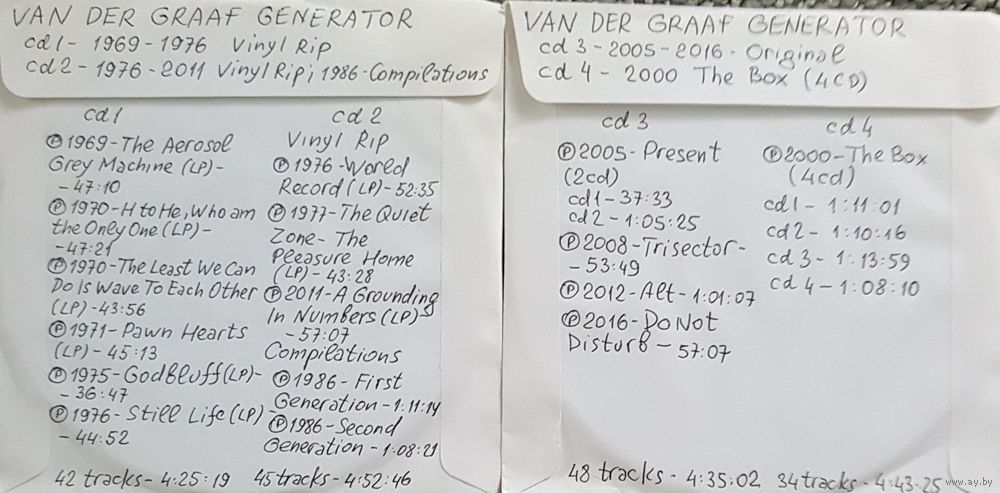 VAN DER GRAAF GENERATOR
cd1 - 1969 - 1976 Vinyl Rip
cd2 - 1976 - 2011 Vinyl Rip; 1986 - Compilations
cd1
Ⓟ 1969 - The Aerosol
Grey Machine (LP) -
- 47:10
Ⓟ 1970 - H to He, Who am
the Only One (LP) -
- 47:21
Ⓟ 1970 - The Least We Can
Do Is Wave To Each Other
(LP) - 43:56
Ⓟ 1971 - Pawn Hearts
(LP) - 45:13
Ⓟ 1975 - Godbluff (LP) -
- 36:47
Ⓟ 1976 - Still Life (LP) -
- 44:52
42 tracks - 4:25:19
cd2
Vinyl Rip
Ⓟ 1976 - World
Record (LP) - 52:35
Ⓟ 1977 - The Quiet
Zone - The
Pleasure Home
(LP) - 43:28
Ⓟ 2011 - A Grounding
In Numbers (LP) -
- 57:07
Compilations
Ⓟ 1986 - First
Generation - 1:11:14
Ⓟ 1986 - Second
Generation - 1:08:21
45 tracks - 4:52:46
VAN DER GRAAF GENERATOR
cd3 - 2005 - 2016 - Original
cd4 - 2000 The Box (4CD)
cd3
Ⓟ 2005 - Present
(2cd)
cd1 - 37:33
cd2 - 1:05:25
Ⓟ 2008 - Trisector -
- 53:49
Ⓟ 2012 - Alt - 1:01:07
Ⓟ 2016 - Do Not
Disturb - 57:07
48 tracks - 4:35:02
cd4
Ⓟ 2000 - The Box
(4cd)
cd1 - 1:11:01
cd2 - 1:10:16
cd3 - 1:13:59
cd4 - 1:08:10
34 tracks - 4:43:25
www.ay.by